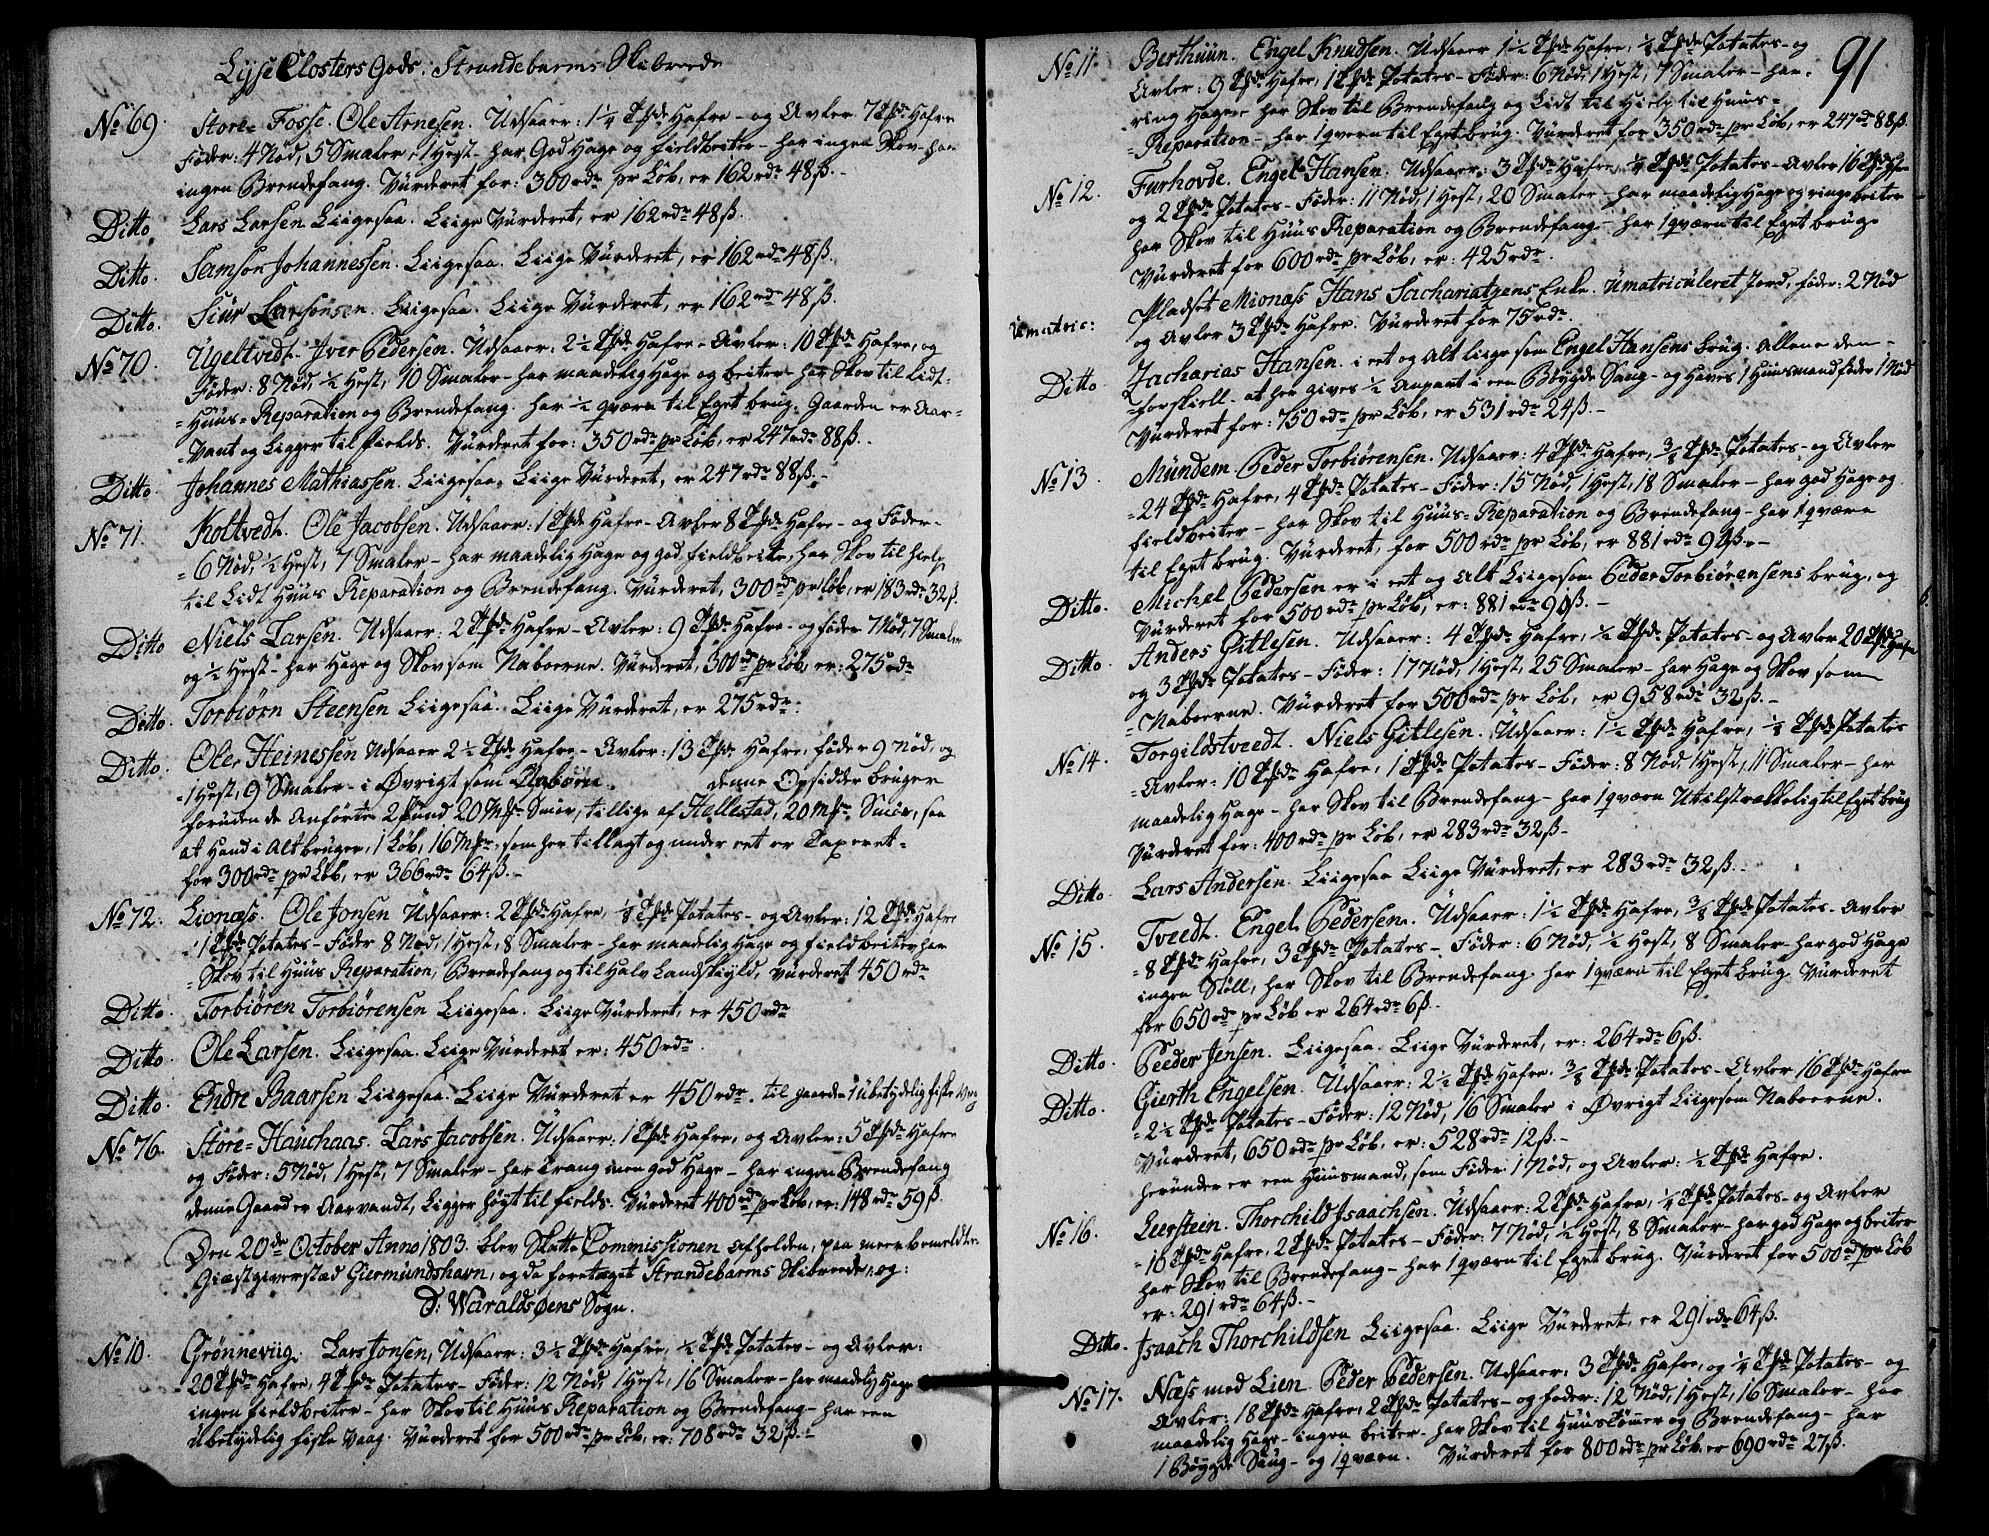 Lyse Closters Gods: Strandebarms Skibreede
No 69. Store-Fosse. Ole Arnesen. Udsaaer: 1¼ Tdr Hafre - og Avler 7 Tdr Hafre
Føder: 4 Nød, 5 Smaler, 1 Hest - har God Hage og fieldbeiter - har ingen Skov - har
ingen Brendefang. Vurderet for: 300 rdr pr Løb, er 162 rdr 48 ß.
Ditto. Lars Larsen Liigesaa. Liige Vurderet, er 162 rdr 48 ß.
Ditto. Samson Johannessen. Liigesaa. Liige Vurderet, er 162 rdr 48 ß.
Ditto. Siur Larsonsen. Liigesaa. Liige Vurderet, er 162 rdr 48 ß.
No 70. Ugeltvedt. Iver Pedersen. Udsaaer: 2½ Tdr Hafre - Avler: 10 Tdr Hafre, og
Føder: 8 Nød, ½ Hest, 10 Smaler - har maadelig Hage og beiter - har Skov til Lidt
Huus-Reparation og Brendefang. har ½ qværn til Eget brug. Gaarden er Aar-
Vant og Ligger til fields. Vurderet for: 350 rdr pr Løb, er 247 rdr 88 ß.
Ditto. Johannes Mathiassen. Liigesaa. Liige Vurderet, er 247 rdr 88 ß.
No 71. Koltvedt. Ole Jacobsen. Udsaaer: 1 Tdr Hafre - Avler 8 Tdr Hafre - og Føder
6 Nød, ½ Hest, 7 Smaler - har maadelig Hage og god fieldbeite, har Skov til hielp
til Lidt Huus Reparation og Brendefang. Vurderet, 300 rdr pr Løb, er 183 rdr 32 ß.
Ditto Niels Larsen. Udsaaer: 2 Tdr Hafre - Avler: 9 Tdr Hafre - og føder 7 Nød, 7 Smaler
og ½ Hest - har Hage og Skov som Naboerne. Vurderet, 300 rdr pr Løb, er: 275 rdr
Ditto. Torbiørn Steensen Liigesaa. Liige Vurderet, er 275 rdr.
Ditto. Ole Heinessen Udsaaer 2½ Tdr Hafre - Avler: 13 Tdr Hafre, føder 9 Nød, og
1 Hest, 9 Smaler - i Øvrigt som Naboen. denne Opsidder bruger
foruden de Anførte 2 Pund 20 Mrk Smør, tillige af Hellestad, 20 Mrk Smør, saa
at Hand i Alt bruger, 1 Løb, 16 Mrk, som her tillagt og under eet er Taxeret
for 300 rdr pr Løb, er 366 rdr 64 ß.
No 72. Lionæss. Ole Jonsen Udsaaer: 2 Tdr Hafre, ⅛ Tdr Potates - og Avler: 12 Tdr Hafre
1 Tdr Potates - Føder 8 Nød, 1 Hest, 8 Smaler - har maadelig Hage og fieldbeiter har
Skov til Huus Reparation, Brendefang og til Halv Landskyld, vurderet 450 rdr
Ditto. Torbiøren Torbiørensen Liigesaa. Liige Vurderet, er 450 rdr
Ditto. Ole Larsen. Liigesaa. Liige Vurderet er: 450 rdr.
Ditto. Endre Baarsen Liigesaa. Liige Vurderet er 450 rdr. til gaarden 1 ubetydelig fiske Vaag
No 76. Store-Hauchaas. Lars Jacobsen. Udsaaer: 1 Tdr Hafre, og Avler: 5 Tdr Hafre
og Føder: 5 Nød, 1 Hest, 7 Smaler - har Trang men god Hage - har ingen Brendefang
denne Gaard er Aarvandt, Ligger høyt til fields. Vurderet 400 rdr pr Løb, er: 148 rdr 59 ß.
Den 20de October Anno 1803. blev Skatte Commissionen afholden, paa meerbemeldte
Giæstgiverstæd Giermundshavn, og da foretaget Strandebarms Skibreede, og:
D: Waraldsøens Sogn.
No 10. Grønneviig. Lars Jonsen, Udsaaer: 3½ Tdr Hafre, ½ Tdr Potates - og Avler:
20 Tdr Hafre, 4 Tdr Potates - Føder: 12 Nød, 1 Hest, 16 Smaler - har maadelig Hage
ingen fieldbeiter - har Skov til Huus Reparation og Brendefang - har een
ubetydelig fiske Vaag. Vurderet for 500 rdr pr Løb, er: 708 rdr 32 ß.
91
No 11. Berthuun. Engel Knudsen. Udsaaer 1½ Tdr Hafre, ⅛ Tdr Potates - og
Avler: 9 Tdr Hafre, 1 Tdr Potates - Føder: 6 Nød, 1 Hest, 7 Smaler - har
ring Hage - har Skov til Brendefang og Lidt til Hielp til Huus-
Reparation - har 1 qvern til Eget brug. Vurderet for 350 rdr pr Løb, er 247 rdr 88 ß.
No 12. Furhovde. Engel Hansen. Udsaaer: 3 Tdr Hafre, ¼ Tdr Potates - Avler 16 Tdr Hafre
og 2 Tdr Potates - Føder: 11 Nød, 1 Hest, 20 Smaler - har maadelig Hage og ringe beiter
har Skov til Huus Reparation og Brendefang - har 1 qværn til Eget bruge
Vurderet for 600 rdr pr Løb, er: 425 rdr.
Umatric: Pladset Mionæss Hans Sachariatzens Enke. Umatriculeret Jord, føder: 2 Nød
og Avler 3 Tdr Hafre. Vurderet for 75 rdr.
Ditto Zacharias Hansen. i eet og Alt liige som Engel Hansens brug. Allene den
forskiell - at her gives ½ Anpart i een Bøygde Saug - og Haves 1 Huusmand føder 1 Nød
Vurderet for: 750 rdr pr Løb, er 531 rdr 24 ß.
No 13. Mundem. Peder Torbiørensen. Udsaaer: 4 Tdr Hafre, ⅜ Tdr Potates - og Avler
24 Tdr Hafre, 4 Tdr Potates - Føder: 15 Nød, 1 Hest, 18 Smaler - har god Hage og
fieldbeiter - har Skov til Huus-Reparation og Brendefang - har 1 qværn
til Eget brug. Vurderet, for 500 rdr pr Løb, er 881 rdr 90 ß.
Ditto. Michel Pedersen er i eet og Alt Liigesom Peder Torbiørensens brug, og
Vurderet for 500 rdr pr Løb, er: 881 rdr 90 ß.
Ditto. Anders Gitlesen. Udsaaer: 4 Tdr Hafre, ½ Tdr Potates - og Avler 20 Tdr Hafre
og 3 Tdr Potates - Føder: 17 Nød, 1 Hest, 25 Smaler - har Hage og Skov som
Naboerne. Vurderet for 500 rdr pr Løb, er 958 rdr 32 ß.
No 14. Torgildstvedt. Niels Gitlesen. Udsaaer: 1½ Tdr Hafre, ⅛ Tdr Potates
Avler: 10 Tdr Hafre, 1 Tdr Potates - Føder: 8 Nød, 1 Hest, 11 Smaler - har
maadelig Hage - har Skov til Brendefang - har 1 qværn Utilstrækkelig til Eget brug
Vurderet for: 400 rdr pr Løb, er 283 rdr 32 ß.
Ditto. Lars Andersen. Liigesaa Liige Vurderet, er 283 rdr 32 ß.
No 15. Tveedt. Engel Pedersen. Udsaaer: 1½ Tdr Hafre, ⅜ Tdr Potates - Avler
8 Tdr Hafre, 3 Tdr Potates - Føder: 6 Nød, ½ Hest, 8 Smaler - har god Hage
ingen Støll, har Skov til Brendefang. har 1 qværn til Eget brug. Vurderet
for 650 rdr pr Løb er 264 rdr 6 ß.
Ditto. Peder Jensen. Liigesaa. Liige Vurderet, er: 264 rdr 6 ß.
Ditto. Gierth Engelsen. Udsaaer: 2½ Tdr Hafre. ⅜ Tdr Potates - Avler 16 Tdr Hafre
2½ Tdr Potates - Føder: 12 Nød, 16 Smaler i Øvrigt Liigesom Naboerne.
Vurderet, 650 rdr pr Løb, er: 528 rdr 12 ß.
herunder er een Huusmand, som Føder 1 Nød, og Avler: ½ Tdr Hafre.
No 16. Leerstein. Thorchild Isaachsen. Udsaaer: 2 Tdr Hafre, ¼ Tdr Potates - og Avler
10 Tdr Hafre, 2 Tdr Potates - Føder: 7 Nød, ½ Hest, 8 Smaler - har god Hage og beiter
har Skov til Brendefang - har 1 qværn til Eget brug. Vurderet for 500 rdr pr Løb
er: 291 rdr 64 ß.
Ditto. Isaach Thorchildsen Liigesaa. Liige Vurderet, er 291 rdr 64 ß.
No 17. Næss med Lien. Peder Pedersen. Udsaaer: 3 Tdr Hafre, og ¼ Tdr Potates - og
Avler: 18 Tdr Hafre, 2 Tdr Potates - og føder: 12 Nød, 1 Hest, 16 Smaler - har
maadelig Hage - ingen beiter - har Skov til Huustømer og Brendefang - har
1 Bøygde Saug - og 1 qværn. Vurderet for 800 rdr pr Løb, er 690 rdr 27 ß.